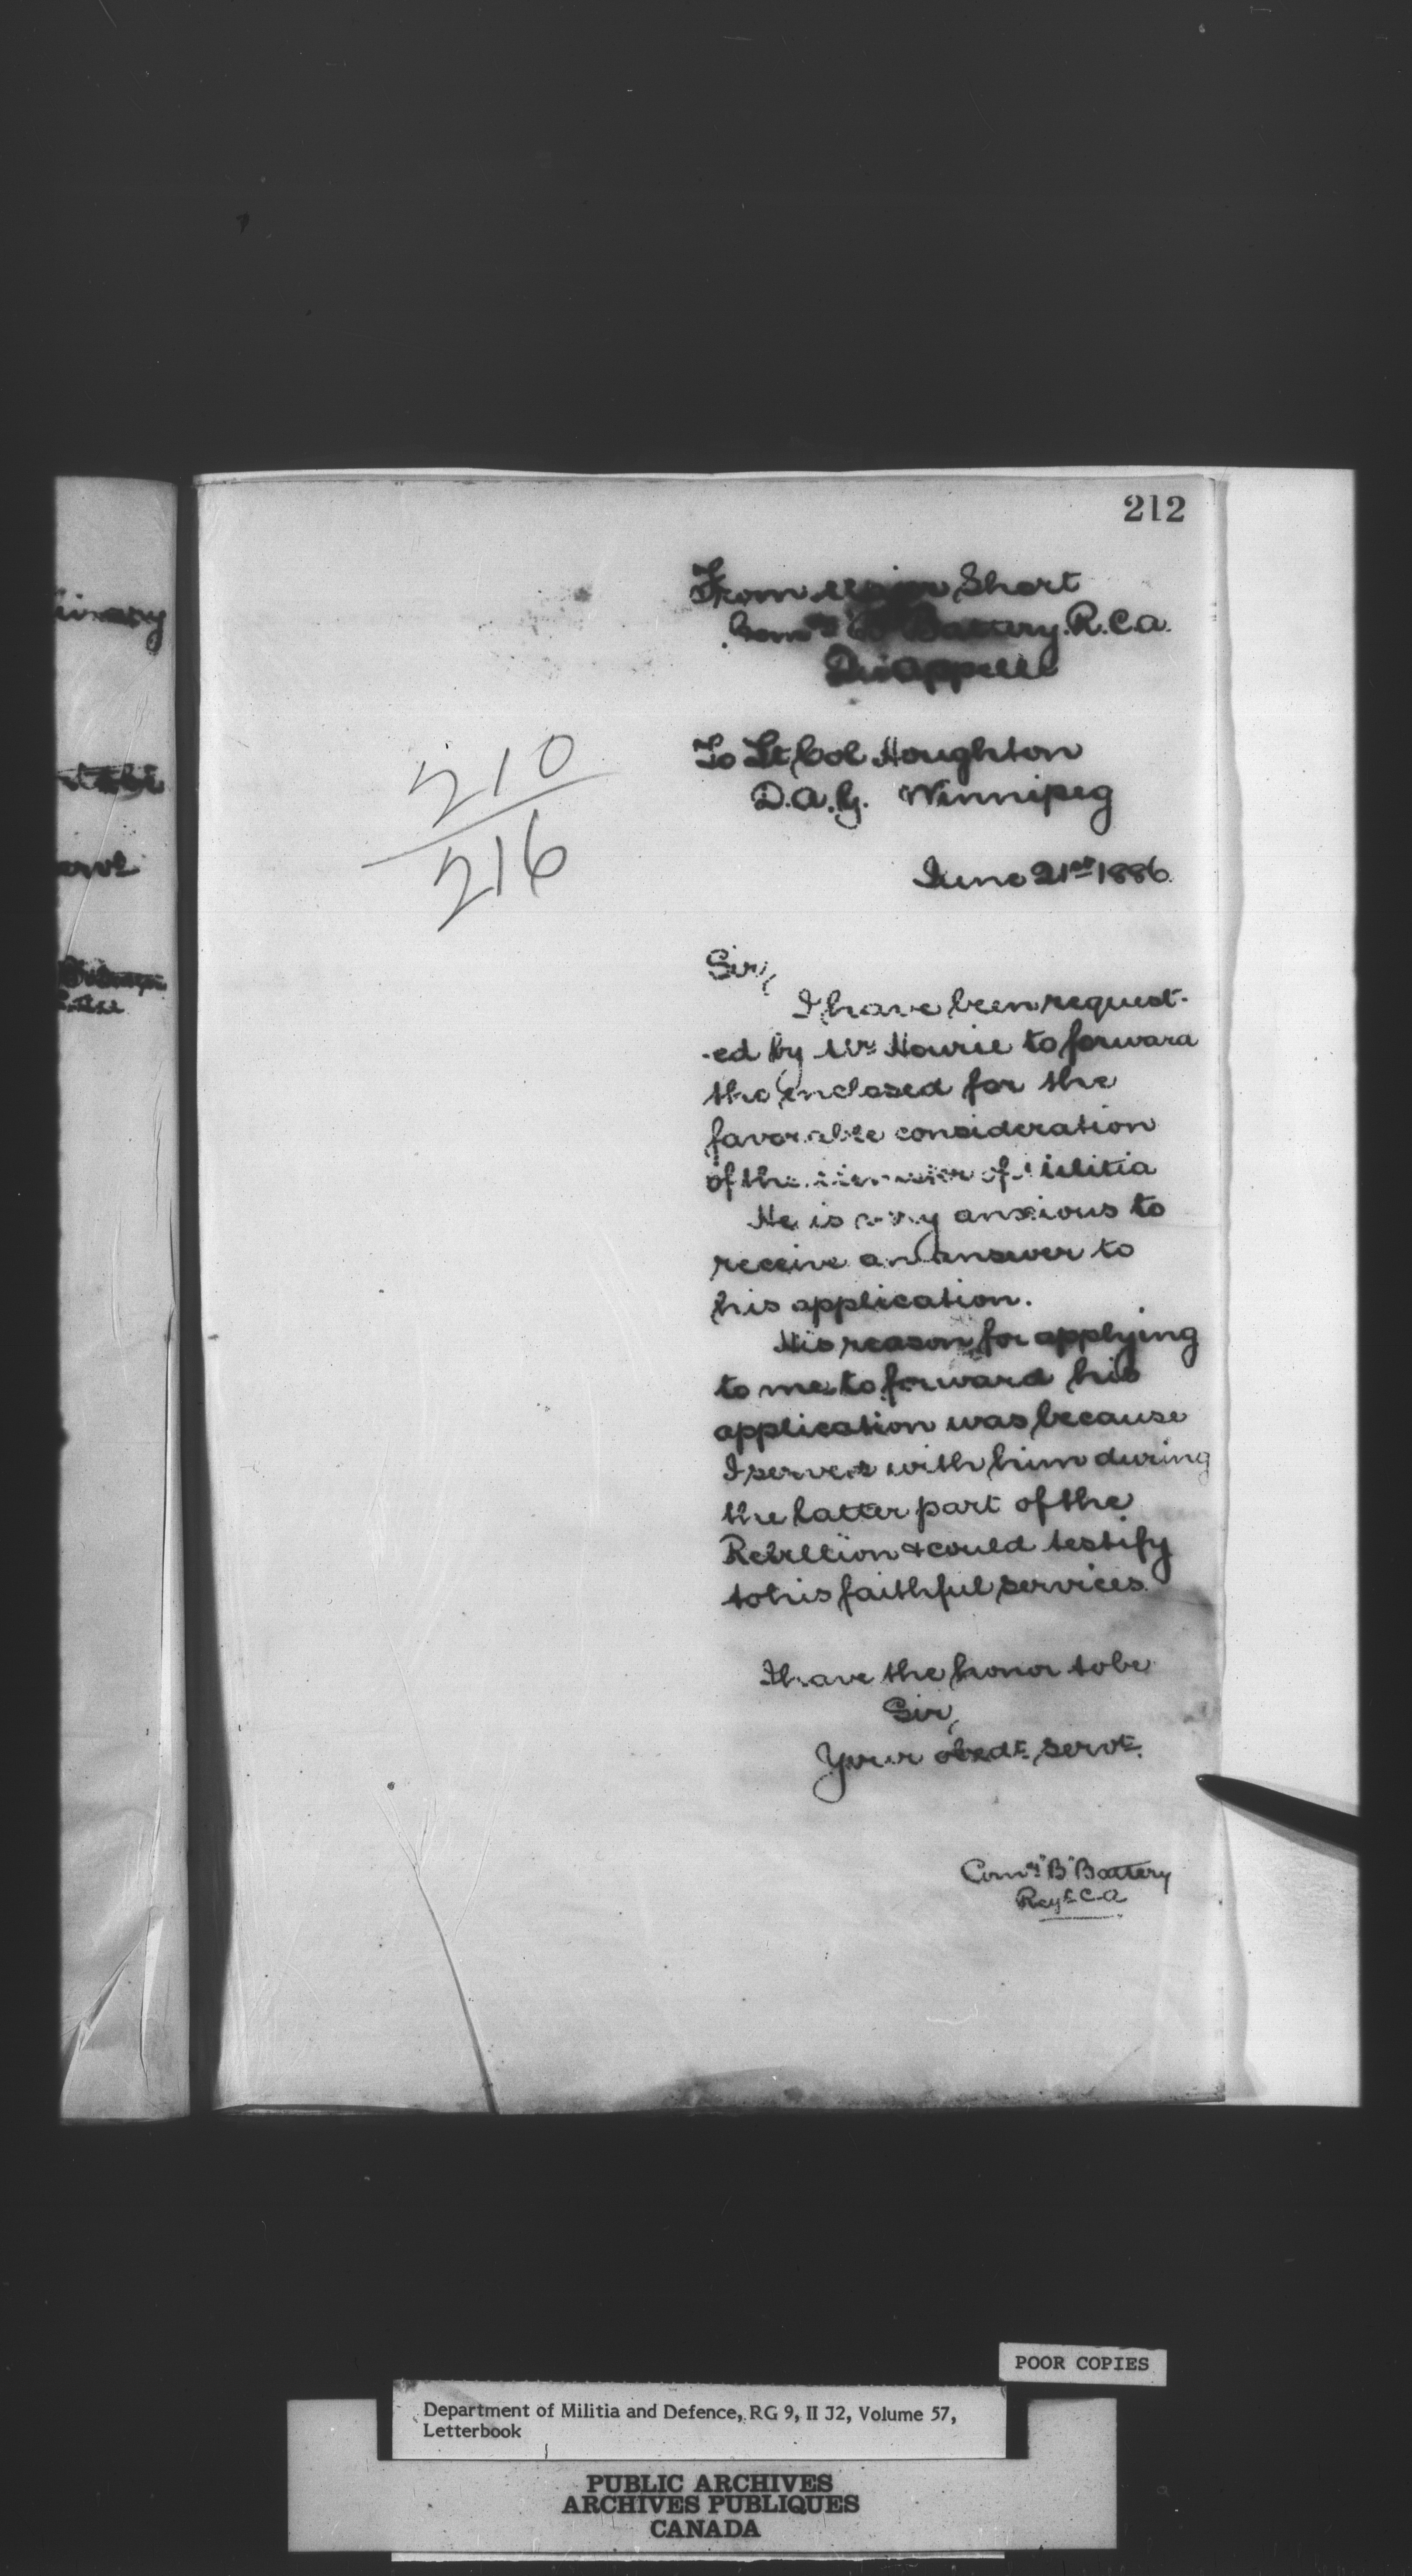 212
From Major Short
Comdg "B" Battery. R.C.A.
Qu'Appelle
To Lt Col Houghton
D.A.G. Winnipeg
210
216
June 21st 1886.
Sir,
I have been request-
-ed by Mr Hourie to forward
the enclosed for the
favorable consideration
of the Minister of Militia
He is very anxious to
receive an answer to
his application.
His reason for applying
to me to forward his
application was because
I served with him during
the latter part of the
Rebellion & could testify
to his faithful services.
I have the honor to be
Sir,
Your obedt servt.
Comdg "B" Battery
Regt C.A
POOR COPIES
Department of Militia and Defence, RG 9, II J2, Volume 57,
Letterbook
PUBLIC ARCHIVES
ARCHIVES PUBLIQUES
CANADA